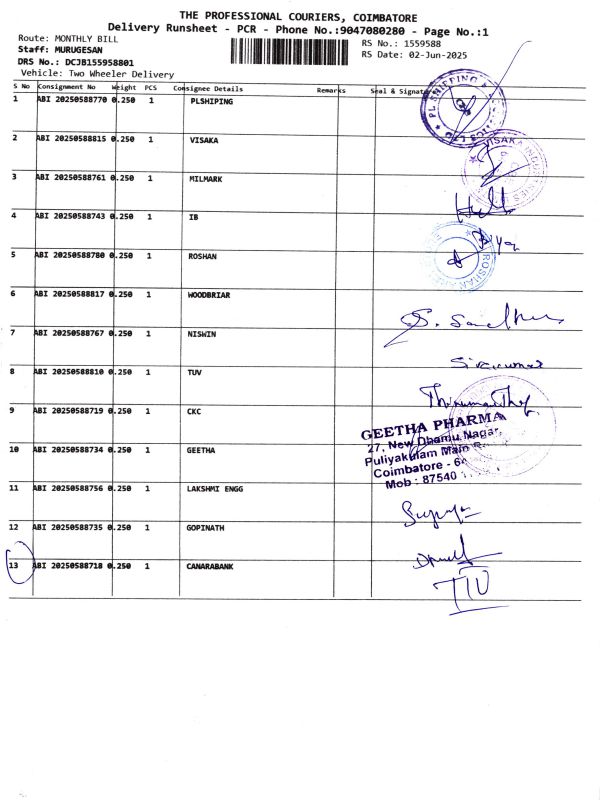 THE PROFESSIONAL COURIERS, COIMBATORE
Delivery Runsheet - PCR - Phone No.:9047080280 - Page No.:1
Route: MONTHLY BILL
RS No.: 1559588
Staff: MURUGESAN
RS Date: 02-Jun-2025
DRS No.: DCJB155958801
Vehicle: Two Wheeler Delivery
S No Consignment No Weight PCS Consignee Details Remarks Seal & Signature
1 ABI 20250588770 0.250 1 PLSHIPING
2 ABI 20250588815 0.250 1 VISAKA
3 ABI 20250588761 0.250 1 MILMARK
4 ABI 20250588743 0.250 1 IB
5 ABI 20250588780 0.250 1 ROSHAN
6 ABI 20250588817 0.250 1 WOODBRIAR
7 ABI 20250588767 0.250 1 NISWIN
8 ABI 20250588810 0.250 1 TUV
9 ABI 20250588719 0.250 1 CKC
10 ABI 20250588734 0.250 1 GEETHA
11 ABI 20250588756 0.250 1 LAKSHMI ENGG
12 ABI 20250588735 0.250 1 GOPINATH
13 ABI 20250588718 0.250 1 CANARABANK
PL SHIPING &
VISAKA INDUSTRIES
ROSHAN
S. Sandhu
Sivakumar
GEETHA PHARMA
27, New Dhamu Nagar,
Puliyakulam Main
Coimbatore - 64
Mob : 87540